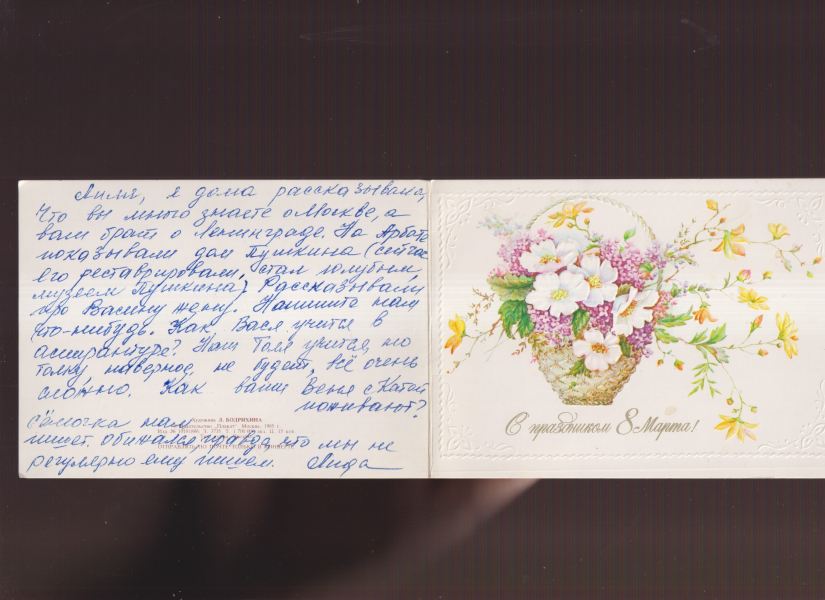 Лиля, я дома рассказывала,
что вы много знаете о Москве, а
ваш брат о Ленинграде. На Арбате
показывали дом Пушкина (сейчас
его реставрировали, стал голубым,
музеем Пушкина). Рассказывали
про Васину жену. Напишите нам
что-нибудь. Как Вася учится в
аспирантуре? Наш Толя учится, но
толку наверное, не будет, всё очень
сложно. Как ваши Веня с Катей
поживают?
Художник Л. БОДРИХИНА
Издательство „Плакат“ Москва,
Сёмочка нам
пишет, обижался правда, что мы не
регулярно ему пишем. Лида
С праздником 8 Марта!